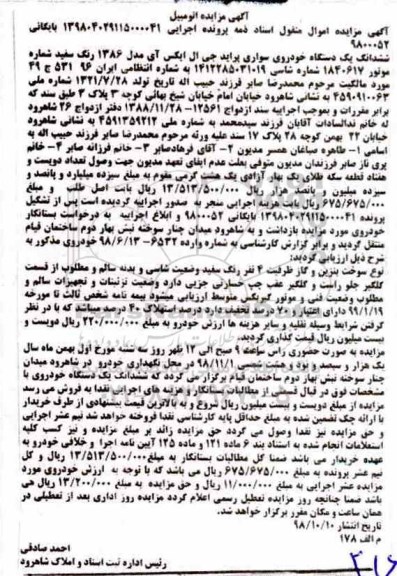 آگهی مزایده اتومبیل
آگهی مزایده اموال منقول اسناد ذمه پرونده اجرایی ۱۳۹۸۰۴۰۲۹۱۱۵۰۰۰۰۴۱ بایگانی
۹۸۰۰۰۵۲
ششدانگ یک دستگاه خودروی سواری پراید جی ال ایکس آی مدل ۱۳۸۶ رنگ سفید شماره
موتور ۱۸۴۰۶۱۷ شماره شاسی ۱۴۱۲۲۸۵۰۳۱۰۱۹ به شماره انتظامی ایران ۹۶ ۵۳۱ ج ۴۹
مورد مالکیت مرحوم محمدرضا صابر فرزند حبیب اله تاریخ تولد ۱۳۲۱/۷/۲۸ شماره ملی
۴۵۹۰۹۱۰۰۶۳ به نشانی شاهرود خیابان امام خیابان شیخ بهائی کوچه ۳ پلاک ۳ طبق سند که
برابر مقررات و بموجب اجراییه سند ازدواج ۱۲۵۶۱- ۱۳۸۸/۱۱/۲۸ دفتر ازدواج ۲۶ شاهرود
که خانم ندالسادات آقایان فرزند سیدمحمد به شماره ملی ۴۵۹۱۳۵۹۲۱۲ به نشانی شاهرود
خیابان ۲۲ بهمن کوچه ۲۸ پلاک ۱۷ سند علیه ورثه مرحوم محمدرضا صابر فرزند حبیب اله به
اسامی ۱- طاهره صباغان همسر مدیون ۲- آقای فرهادصابر ۳- خانم فرزانه صابر ۴- خانم
پری ناز صابر فرزندان مدیون متوفی بعلت عدم ایفای تعهد مدیون جهت وصول تعداد دویست و
هفتاد قطعه سکه طلای یک بهار آزادی یک هشت گرمی مقوم به مبلغ سیزده میلیارد و پانصد و
سیزده میلیون و پانصد هزار ریال ۱۳/۵۱۳/۵۰۰/۰۰۰ ریال بابت اصل طلب و مبلغ
۶۷۵/۶۷۵/۰۰۰ ریال بابت هزینه اجرایی منجر به صدور اجراییه گردیده است پس از تشکیل
پرونده ۱۳۹۸۰۴۰۲۹۱۱۵۰۰۰۰۴۱ بایگانی ۹۸۰۰۰۵۲ و ابلاغ اجراییه به درخواست بستانکار
خودروی مورد مزایده بازداشت و به شاهرود میدان چنار سوخته نبش بهار دوم ساختمان قیام
منتقل گردید و برابر گزارش کارشناسی به شماره وارده ۶۵۳۲- ۹۸/۶/۱۳ خودروی مذکور به
شرح ذیل ارزیابی گردید:
نوع سوخت بنزین و گاز ظرفیت ۴ نفر رنگ سفید وضعیت شاسی و بدنه سالم و مطلوب از قسمت
گلگیر جلو راست و گلگیر عقب چپ خسارتی جزیی دارد وضعیت تزئینات و تجهیزات سالم و
مطلوب وضعیت فنی و موتور گیربکس متوسط ارزیابی میشود بیمه نامه شخص ثالث تا مورخه
۹۹/۱/۱۹ دارای اعتبار و ۷۰ درصد تخفیف دارد درصد استهلاک ۴۰ درصد میباشد که با در نظر
گرفتن شرایط وسیله نقلیه و سایر هزینه ها ارزش خودرو به مبلغ ۲۲۰/۰۰۰/۰۰۰ ریال دویست و
بیست میلیون ریال قیمت گذاری گردید.
مزایده به صورت حضوری راس ساعت ۹ صبح الی ۱۲ ظهر روز سه شنبه مورخ اول بهمن ماه سال
یک هزار و سیصد و نود و هشت شمسی ۹۸/۱۱/۱ در محل نگهداری خودرو در شاهرود میدان
چنار سوخته نبش بهار دوم ساختمان قیام برگزار می گردد که ششدانگ یک دستگاه خودروی با
مشخصات فوق در قبال قسمتی از مطالبات بستانکار و هزینه های اجرایی نقدا به فروش می رسد
مزایده از مبلغ دویست و بیست میلیون ریال شروع و به بالاترین قیمت پیشنهادی از طرف خریدار
با ارائه چک تضمین شده به مبلغ حداقل پایه کارشناسی نقدا فروخته خواهد شد نیم عشر اجرایی
و حق مزایده نیز نقدا وصول می گردد حق مزایده زائد بر مبلغ مزایده و نیز کسب کلیه
استعلامات انجام شده به استناد بند ۶ ماده ۱۲۱ و ماده ۱۲۵ آیین نامه اجرا و خلافی خودرو به
عهده خریدار می باشد ضمنا کل مطالبات بستانکار به مبلغ ۱۳/۵۱۳/۵۰۰/۰۰۰ ریال و کل
نیم عشر پرونده به مبلغ ۶۷۵/۶۷۵/۰۰۰ ریال می باشد که با توجه به ارزش خودروی مورد
مزایده عشر اجرایی به مبلغ ۱۱/۰۰۰/۰۰۰ ریال و حق مزایده به مبلغ ۱۳/۲۰۰/۰۰۰ ریال می
باشد ضمنا چنانچه روز مزایده تعطیل رسمی اعلام گردد مزایده روز اداری بعد از تعطیلی در
همان ساعت و مکان مقرر برگزار خواهد شد.
تاریخ انتشار ۹۸/۱۰/۱۰
م الف ۱۷۸
احمد صادقی
رئیس اداره ثبت اسناد و املاک شاهرود
۴۱۶